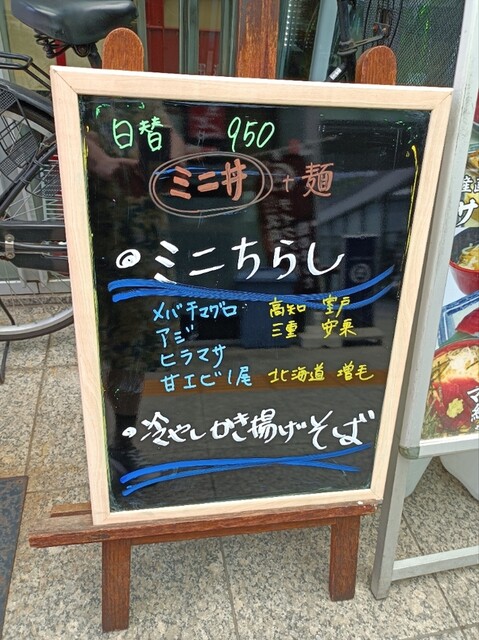 日替 950
ミニ丼 + 麺
ミニちらし
メバチマグロ 高知 室戸
アジ 三重 安乗
ヒラマサ
甘エビ1尾 北海道 増毛
冷やしかき揚げそば